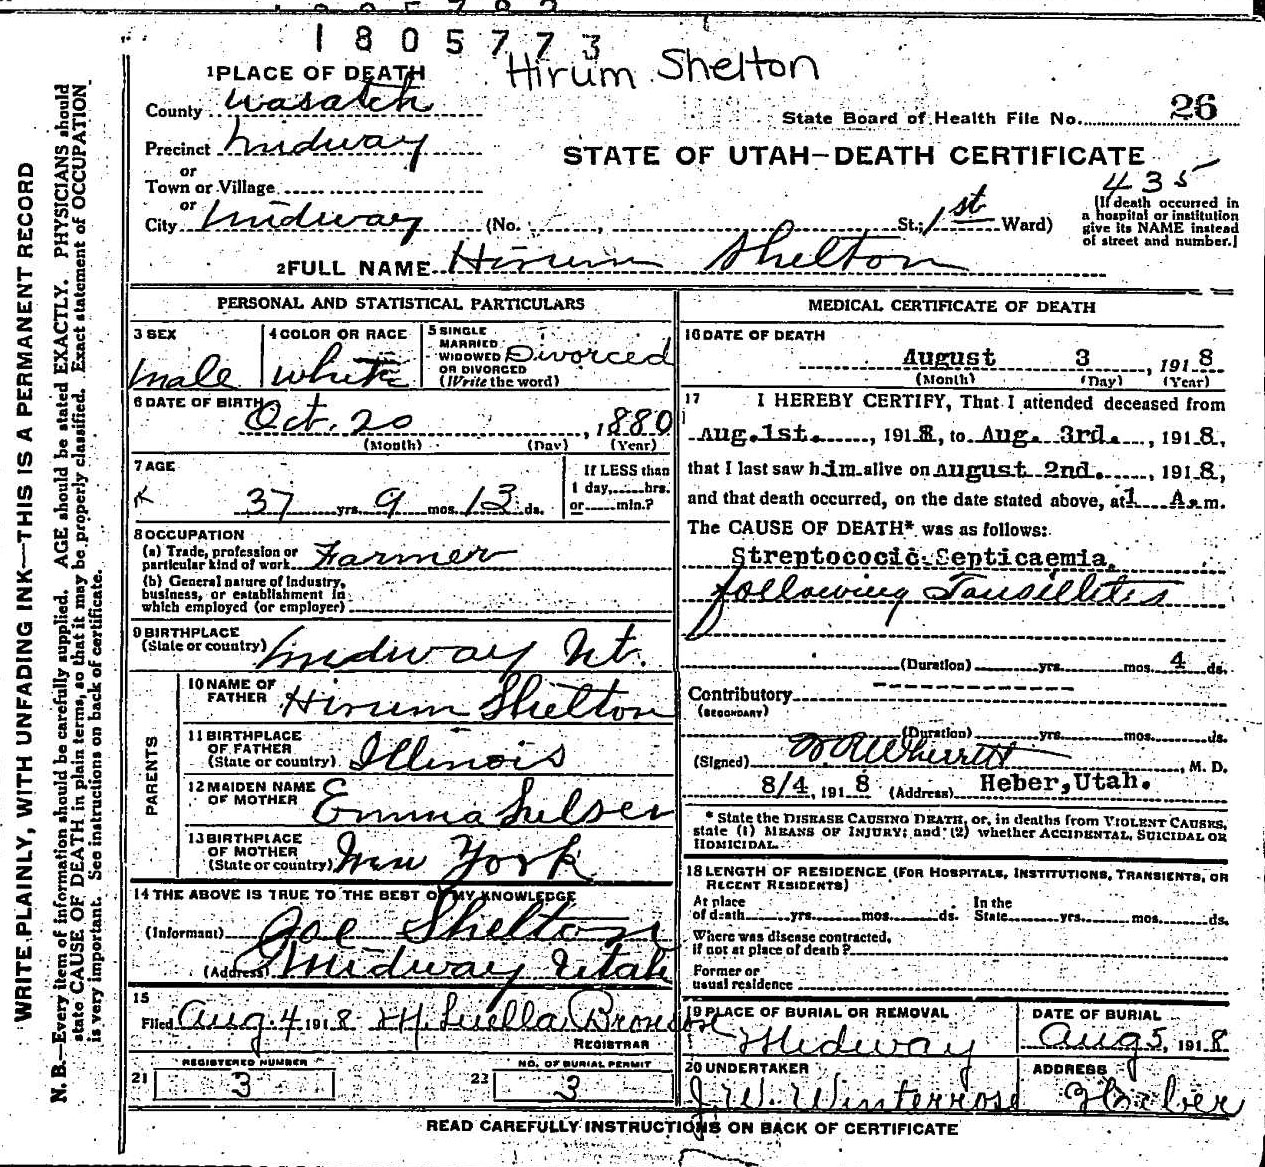 1805773
Hirum Shelton
1 PLACE OF DEATH
County Wasatch
State Board of Health File No. 26
Precinct Midway
STATE OF UTAH—DEATH CERTIFICATE
or
Town or Village
435
or
City Midway (No. St.; 1st Ward)
(If death occurred in
a hospital or institution
give its NAME instead
of street and number.)
2 FULL NAME Hirum Shelton
PERSONAL AND STATISTICAL PARTICULARS
3 SEX
male
4 COLOR OR RACE
white
5 SINGLE
MARRIED
WIDOWED
OR DIVORCED
(Write the word)
Divorced
6 DATE OF BIRTH
Oct. 20, 1880
(Month) (Day) (Year)
7 AGE
37 yrs. 9 mos. 13 ds.
If LESS than
1 day, hrs.
or min.?
8 OCCUPATION
(a) Trade, profession or
particular kind of work Farmer
(b) General nature of industry,
business, or establishment in
which employed (or employer)
9 BIRTHPLACE
(State or country) Midway Ut.
PARENTS
10 NAME OF
FATHER Hirum Shelton
11 BIRTHPLACE
OF FATHER
(State or country) Illinois
12 MAIDEN NAME
OF MOTHER Emma
13 BIRTHPLACE
OF MOTHER
(State or country) New York
14 THE ABOVE IS TRUE TO THE BEST OF MY KNOWLEDGE
(Informant) Joe Shelton
(Address) Midway Utah
15
Filed Aug. 4 1918 M. Luella Bronson
REGISTRAR
REGISTERED NUMBER
21 3
NO. OF BURIAL PERMIT
22 3
MEDICAL CERTIFICATE OF DEATH
16 DATE OF DEATH
August 3, 1918
(Month) (Day) (Year)
17 I HEREBY CERTIFY, That I attended deceased from
Aug. 1st., 1918, to Aug. 3rd., 1918,
that I last saw him alive on August 2nd., 1918,
and that death occurred, on the date stated above, at 1 A. m.
The CAUSE OF DEATH* was as follows:
Streptococic Septicaemia,
following Tonsillitis
(Duration) yrs. mos. 4 ds.
Contributory
(SECONDARY)
(Duration) yrs. mos. ds.
(Signed) Wherritt, M. D.
8/4, 1918 (Address) Heber, Utah.
* State the DISEASE CAUSING DEATH, or, in deaths from VIOLENT CAUSES,
state (1) MEANS OF INJURY; and (2) whether ACCIDENTAL, SUICIDAL OR
HOMICIDAL.
18 LENGTH OF RESIDENCE (FOR HOSPITALS, INSTITUTIONS, TRANSIENTS, OR
RECENT RESIDENTS)
At place
of death yrs. mos. ds.
In the
State yrs. mos. ds.
Where was disease contracted,
if not at place of death?
Former or
usual residence
19 PLACE OF BURIAL OR REMOVAL
Midway
DATE OF BURIAL
Aug 5, 1918
20 UNDERTAKER
J. W. Winterrose
ADDRESS
Heber
READ CAREFULLY INSTRUCTIONS ON BACK OF CERTIFICATE
WRITE PLAINLY, WITH UNFADING INK—THIS IS A PERMANENT RECORD
N. B.—Every item of information should be carefully supplied. AGE should be stated EXACTLY. PHYSICIANS should
state CAUSE OF DEATH in plain terms, so that it may be properly classified. Exact statement of OCCUPATION
is very important. See instructions on back of certificate.